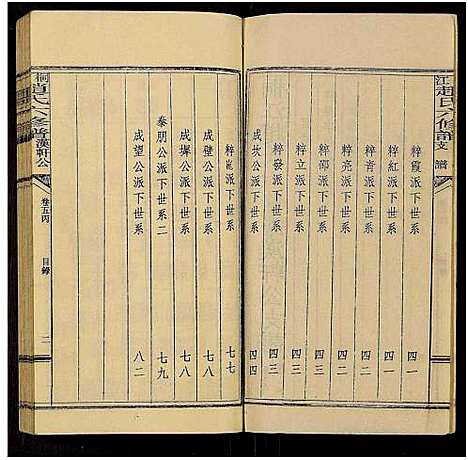 江趙氏六修譜支譜
粹霞派下世系 四一
粹紅派下世系 四一
粹青派下世系 四二
粹亮派下世系 四二
粹林派下世系 四二
粹立派下世系 四三
粹發派下世系 四三
成坎公派下世系 四四
粹嵐派下世系 七七
成璧公派下世系 七八
成墀公派下世系 七八
泰朋公派下世系二 七九
成望公派下世系 八二
桐趙氏六修譜漢軒公
卷五丙
目錄
二